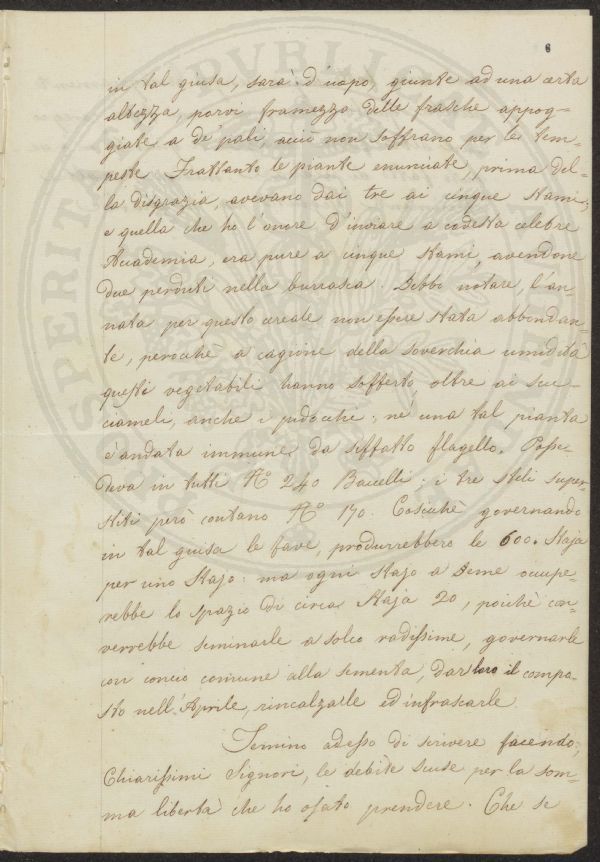 6
in tal guisa, sarà d'uopo, giunte ad una certa
altezza, porvi framezzo delle frasche appog-
giate a de' pali acciò non soffrano per le tem-
peste. Frattanto le piante enunciate, prima del-
la disgrazia, avevano dai tre ai cinque stami;
e quella che ho l'onore d'inviare a codesta celebre
Accademia, era pure a cinque stami, avendone
due perduti nella burrasca. Debbo notare, l'an-
nata per questo cereale non essere stata abbondan-
te, perochè a cagione della soverchia umidità
questi vegetabili hanno sofferto oltre ai suc-
ciameli, anche i pidocchi; nè una tal pianta
è andata immune da siffatto flagello. Posse-
deva in tutti N.° 240 Baccelli: i tre steli super-
stiti però contano N.° 170. Cosichè governando
in tal guisa le fave, produrrebbero le 600. Staja
per uno Stajo: ma ogni Stajo a Seme occupe-
rebbe lo spazio di circa Staja 20, poichè con-
verrebbe seminarle a solco radissime, governarle
con concio comune alla sementa, dar loro il compo-
sto nell'Aprile, rincalzarle ed infrascarle.
Termino adesso di scrivere facendo,
Chiarissimi Signori, le debite scuse per la som-
ma libertà che ho osato prendere. Che se